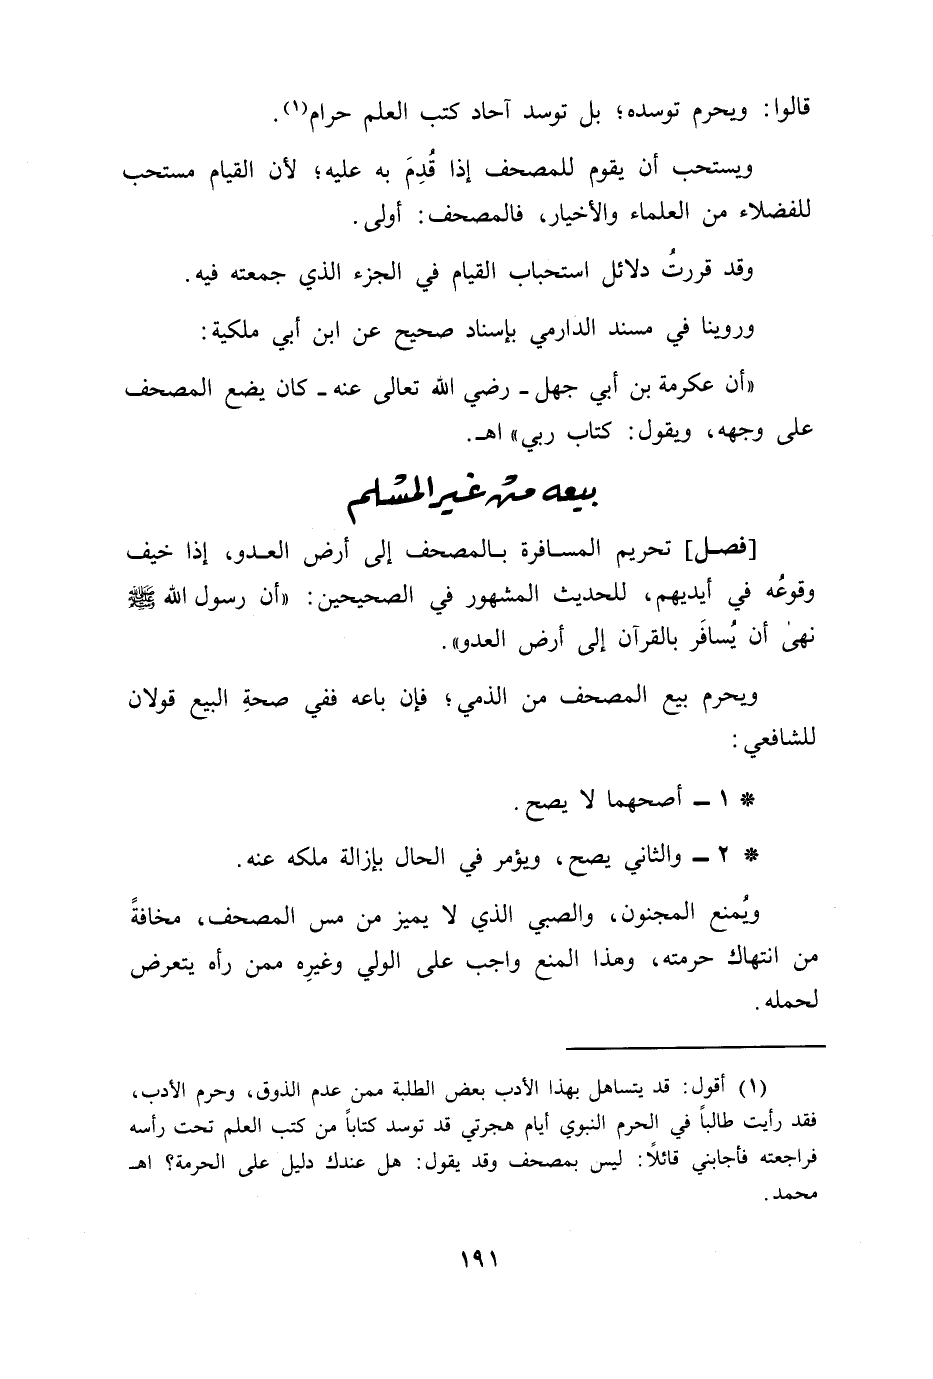 قالوا: ويحرم توسده؛ بل توسد آحاد كتب العلم حرام(١).
ويستحب أن يقوم للمصحف إذا قُدِمَ به عليه؛ لأن القيام مستحب
للفضلاء من العلماء والأخيار، فالمصحف: أولى.
وقد قررتُ دلائل استحباب القيام في الجزء الذي جمعته فيه.
وروينا في مسند الدارمي بإسناد صحيح عن ابن أبي ملكية:
«أن عكرمة بن أبي جهل ـ رضي الله تعالى عنه ـ كان يضع المصحف
على وجهه، ويقول: كتاب ربي» اهـ.
بيعه من غير المسلم
[فصل] تحريم المسافرة بالمصحف إلى أرض العدو، إذا خيف
وقوعُه في أيديهم، للحديث المشهور في الصحيحين: «أن رسول الله ﷺ
نهىٰ أن يُسافَر بالقرآن إلى أرض العدو».
ويحرم بيع المصحف من الذمي؛ فإن باعه ففي صحةِ البيع قولان
للشافعي:
* ١ ـ أصحهما لا يصح.
* ٢ ـ والثاني يصح، ويؤمر في الحال بإزالة ملكه عنه.
ويُمنع المجنون، والصبي الذي لا يميز من مس المصحف، مخافةً
من انتهاك حرمته، وهذا المنع واجب على الولي وغيرِه ممن رأه يتعرض
لحمله.
(١) أقول: قد يتساهل بهذا الأدب بعض الطلبة ممن عدم الذوق، وحرم الأدب،
فقد رأيت طالباً في الحرم النبوي أيام هجرتي قد توسد كتاباً من كتب العلم تحت رأسه
فراجعته فأجابني قائلاً: ليس بمصحف وقد يقول: هل عندك دليل على الحرمة؟ اهـ
محمد.
١٩١